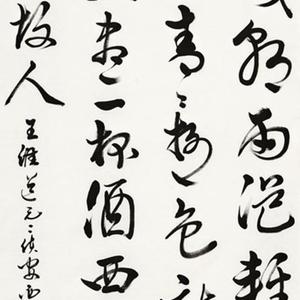 朝雨浥輕
青〻柳色新
盡一杯酒西
故人
王維送元二使安西